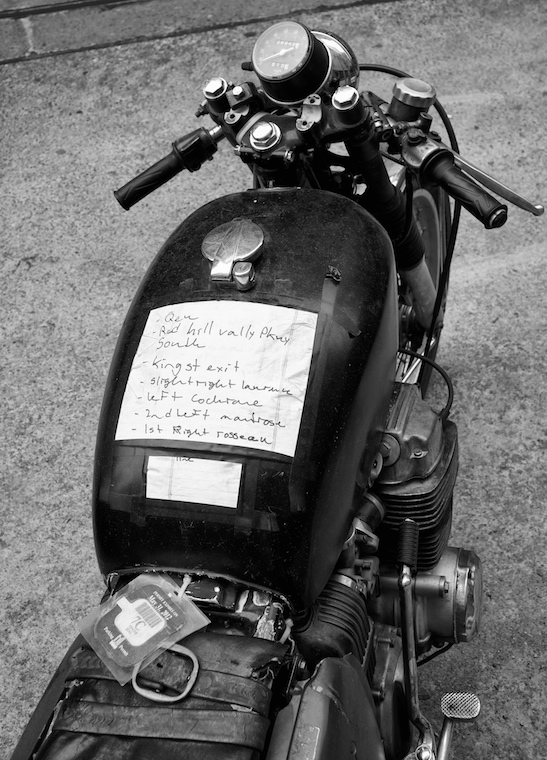 - Qew
- Red hill vally Pkwy
South
- King st exit
- slight right lawrence
- left Cochrane
- 2nd Left montrose
- 1st Right rosseau
line
May 31, 2012
76